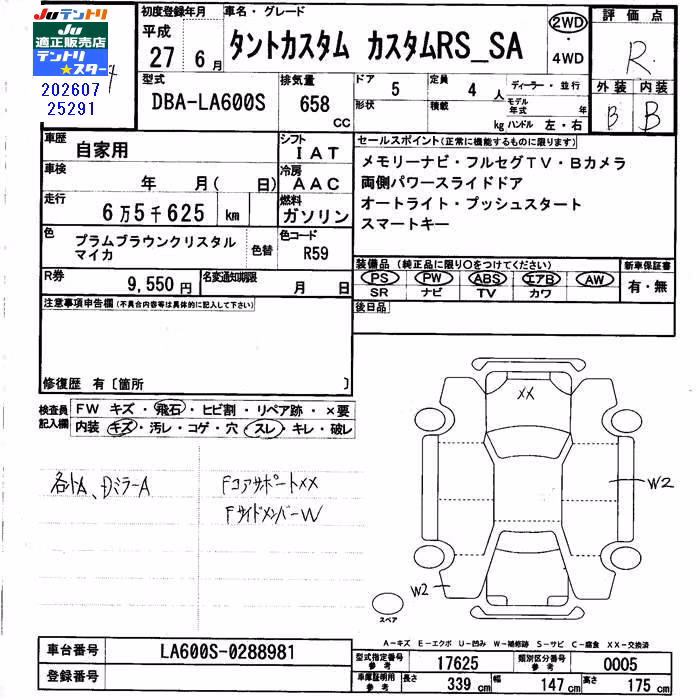 Juテントリ
Ju
適正販売店
テントリ
★スター
202607
25291
初度登録年月
平成
27 6月
車名・グレード
タントカスタム カスタムRS_SA
2WD
・
4WD
評価点
R
外装 内装
B B
型式
DBA-LA600S
排気量
658
CC
ドア 5
定員 4人
ディーラー・並行
形状
積載 kg
モデル年式 年
ハンドル 左・右
車歴
自家用
シフト
IAT
車検
年 月( 日)
冷房
AAC
走行
6万5千625 km
燃料
ガソリン
色
プラムブラウンクリスタル
マイカ
色替
色コード
R59
R券
9,550円
名変通知期限
月 日
セールスポイント(正常に機能するものに限ります)
メモリーナビ・フルセグTV・Bカメラ
両側パワースライドドア
オートライト・プッシュスタート
スマートキー
装備品(純正品に限り○をつけてください)
PS PW ABS エアB AW
SR ナビ TV カワ
新車保証書
有・無
後日品
注意事項申告欄(不具合内容等は具体的に記入して下さい)
修復歴 有〔箇所 〕
検査員
記入欄
FW キズ・飛石・ヒビ割・リペア跡・×要
内装 キズ・汚レ・コゲ・穴・スレ・キレ・破レ
各小A、DミラーA
FコアサポートXX
FサイドメンバーW
XX
W2
W2
スペア
A-キズ E-エクボ U-凹み W-補修跡 S-サビ C-腐食 XX-交換済
車台番号
LA600S-0288981
登録番号
型式指定番号
参考
17625
類別区分番号
参考
0005
車庫証明用
参考
長さ 339cm 幅 147cm 高さ 175cm